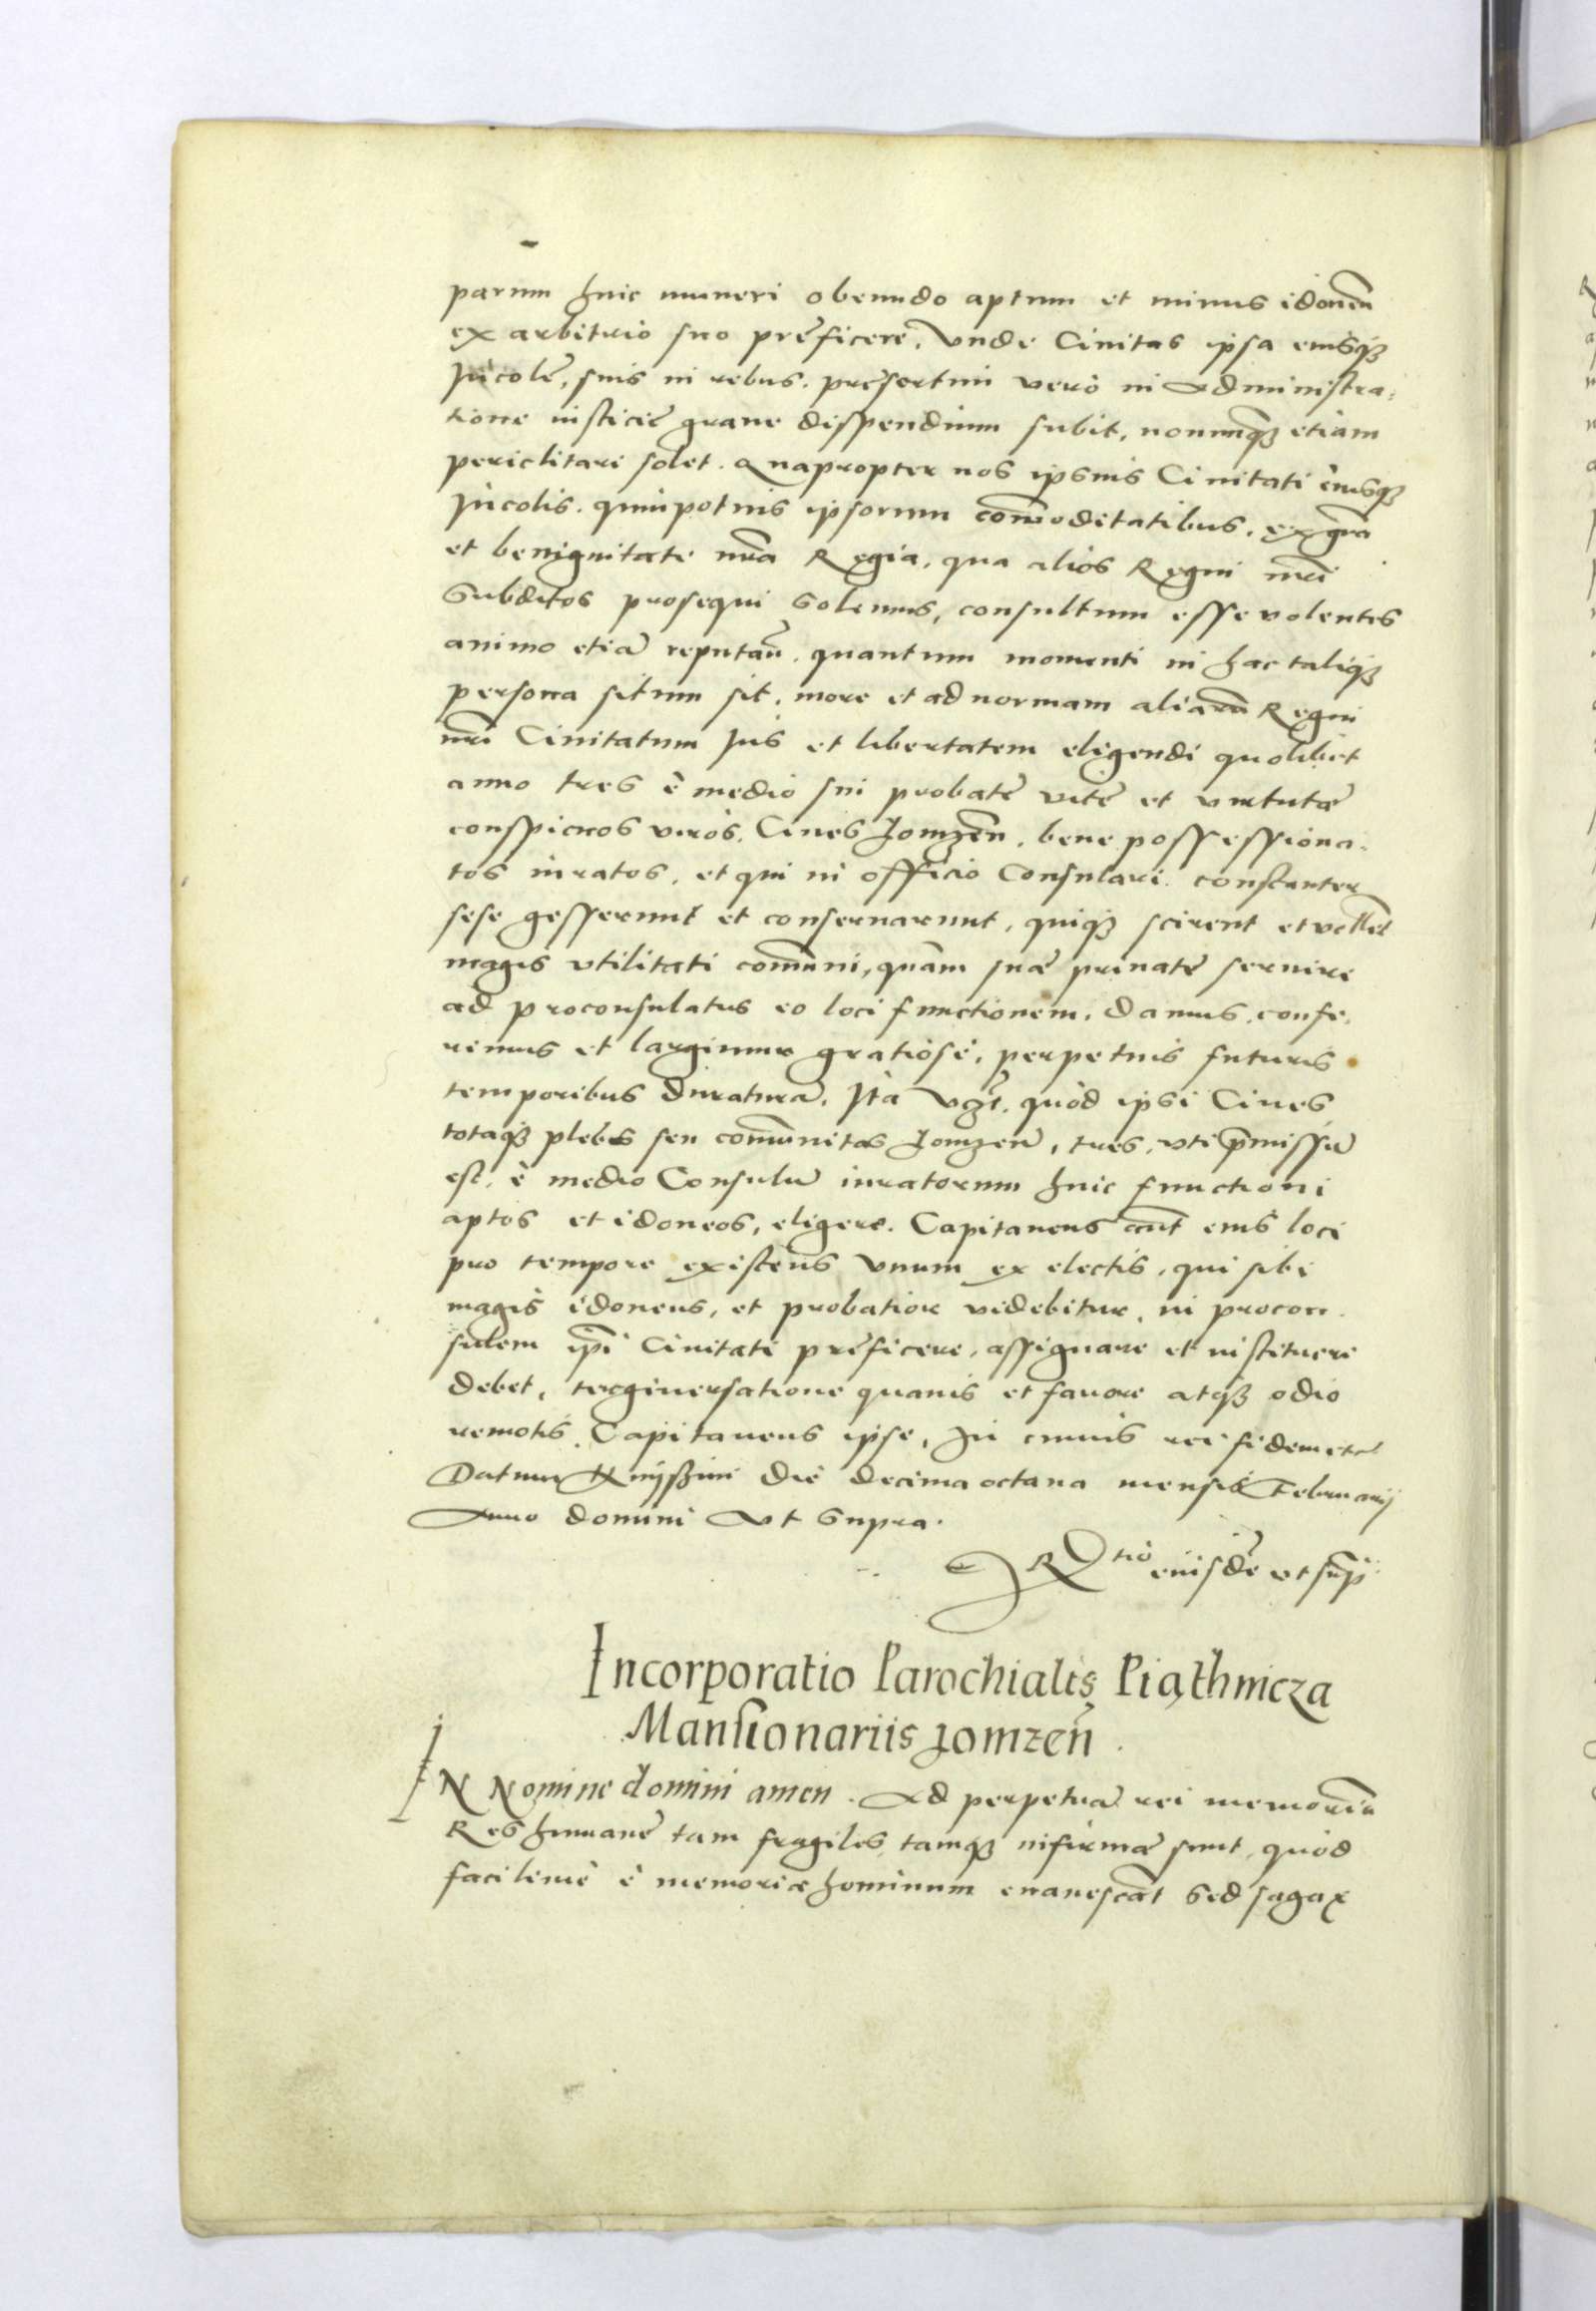 parum huic muneri obeundo aptum et minus idoneũ
ex arbitrio suo pręficere, Vnde Ciuitas ipsa eiusq₃
Incolę, suis in rebus, pręsertim verò in Administra-
tione iusticię graue dispendium subit, nonnunq₃ etiam
periclitari solet. Quapropter nos ipsius Ciuitati eiusq₃
Incolis, quinpotius ipsorum com̃oditatibus, ex grã
et benignitate nrã Regia, qua alios Regni nrĩ
Subditos prosequi solemus, consultum esse volentes
animo etiã reputañ, quantum momenti in hac taliq₃
persona situm sit, more et ad normam aliarũ Regni
nrĩ Ciuitatum Ius et libertatem eligendi quolibet
anno tres è medio sui probatę vitę et virtutæ
conspicuos viròs, Ciues Lomzeñ, bene possessiona-
tos iuratos, et qui in officio Consulari constanter
sese gesserunt et conseruarunt, quiq₃ scirent et vellẽt
magis vtilitati com̃uni, quàm suæ priuatę seruire
ad proconsulatus eo loci functionem, Damus, confe-
rimus et largimur gratiosè, perpetuis futuris
temporibus duraturã, Ità vz̃t, quòd ipsi Ciues
totaq₃ plebs seu com̃unitas Lomzeñ, tres, vti p̃missũ
est, è medio Consulũ iuratorum huic functioni
aptos et idoneos, eligere, Capitaneus aũt eius loci
pro tempore existens vnum ex electis, qui sibi
magis idoneus, et probatior videbitur, in procon-
sulem ip̃i Ciuitati pręficere, assignare et instituere
debet, tergiuersatione quauis et fauore atq₃ odio
remotis Capitaneus ipse, In cuius rei fidem etc̃
Datum Knyssini die decima octaua mensis Februarij
Anno domini Vt supra.
R̃tio eiusdẽ ut sup̃
Incorporatio Parochialis Piąthnicza
Mansionariis Lomzeñ.
IN Nomine domini amen. Ad perpetuã rei memoriã
Res humanę tam fragiles, tamq₃ infirmæ sunt, quòd
facilimè è memoria hominum euanescãt sed sagax